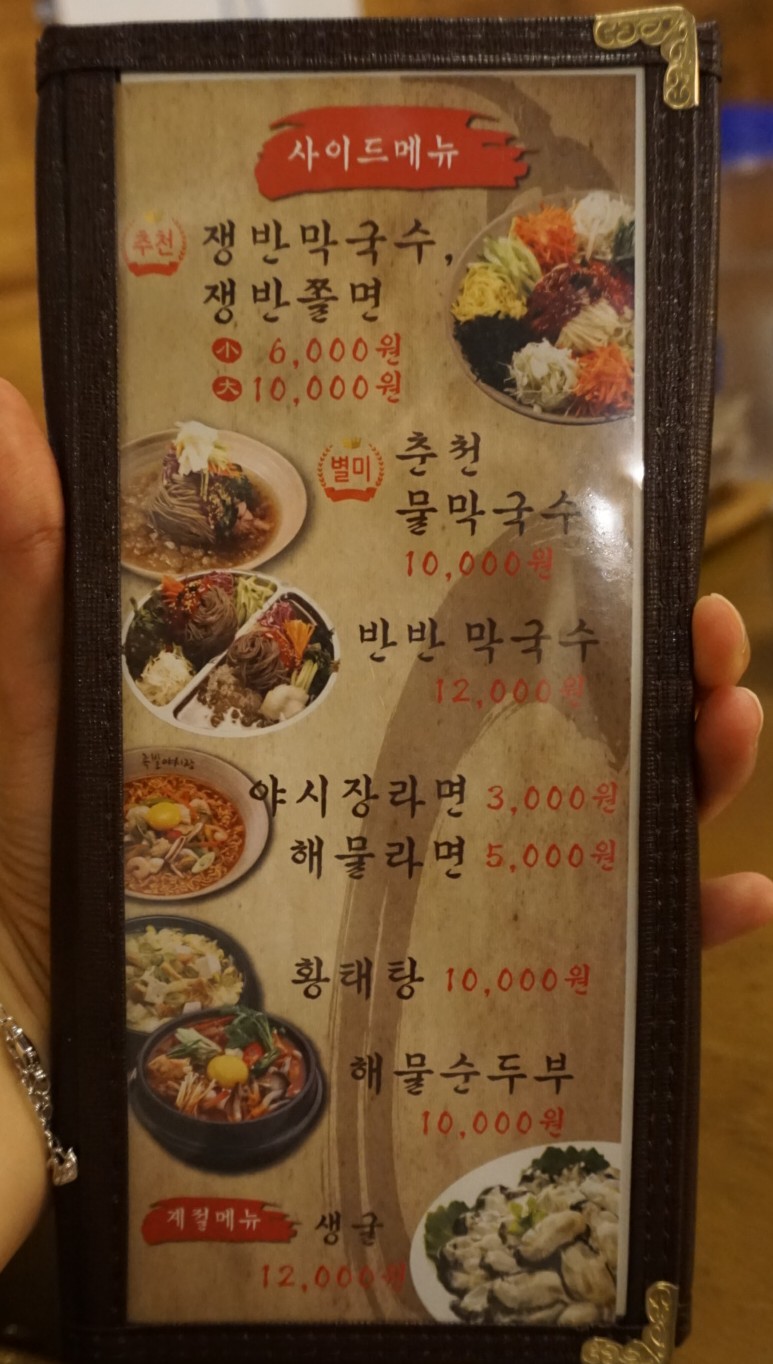 사이드메뉴
추천
쟁반막국수,
쟁반쫄면
小 6,000원
大 10,000원
별미
춘천
물막국수
10,000원
반반 막국수
12,000원
야시장라면 3,000원
해물라면 5,000원
황태탕 10,000원
해물순두부
10,000원
계절메뉴 생굴
12,000원